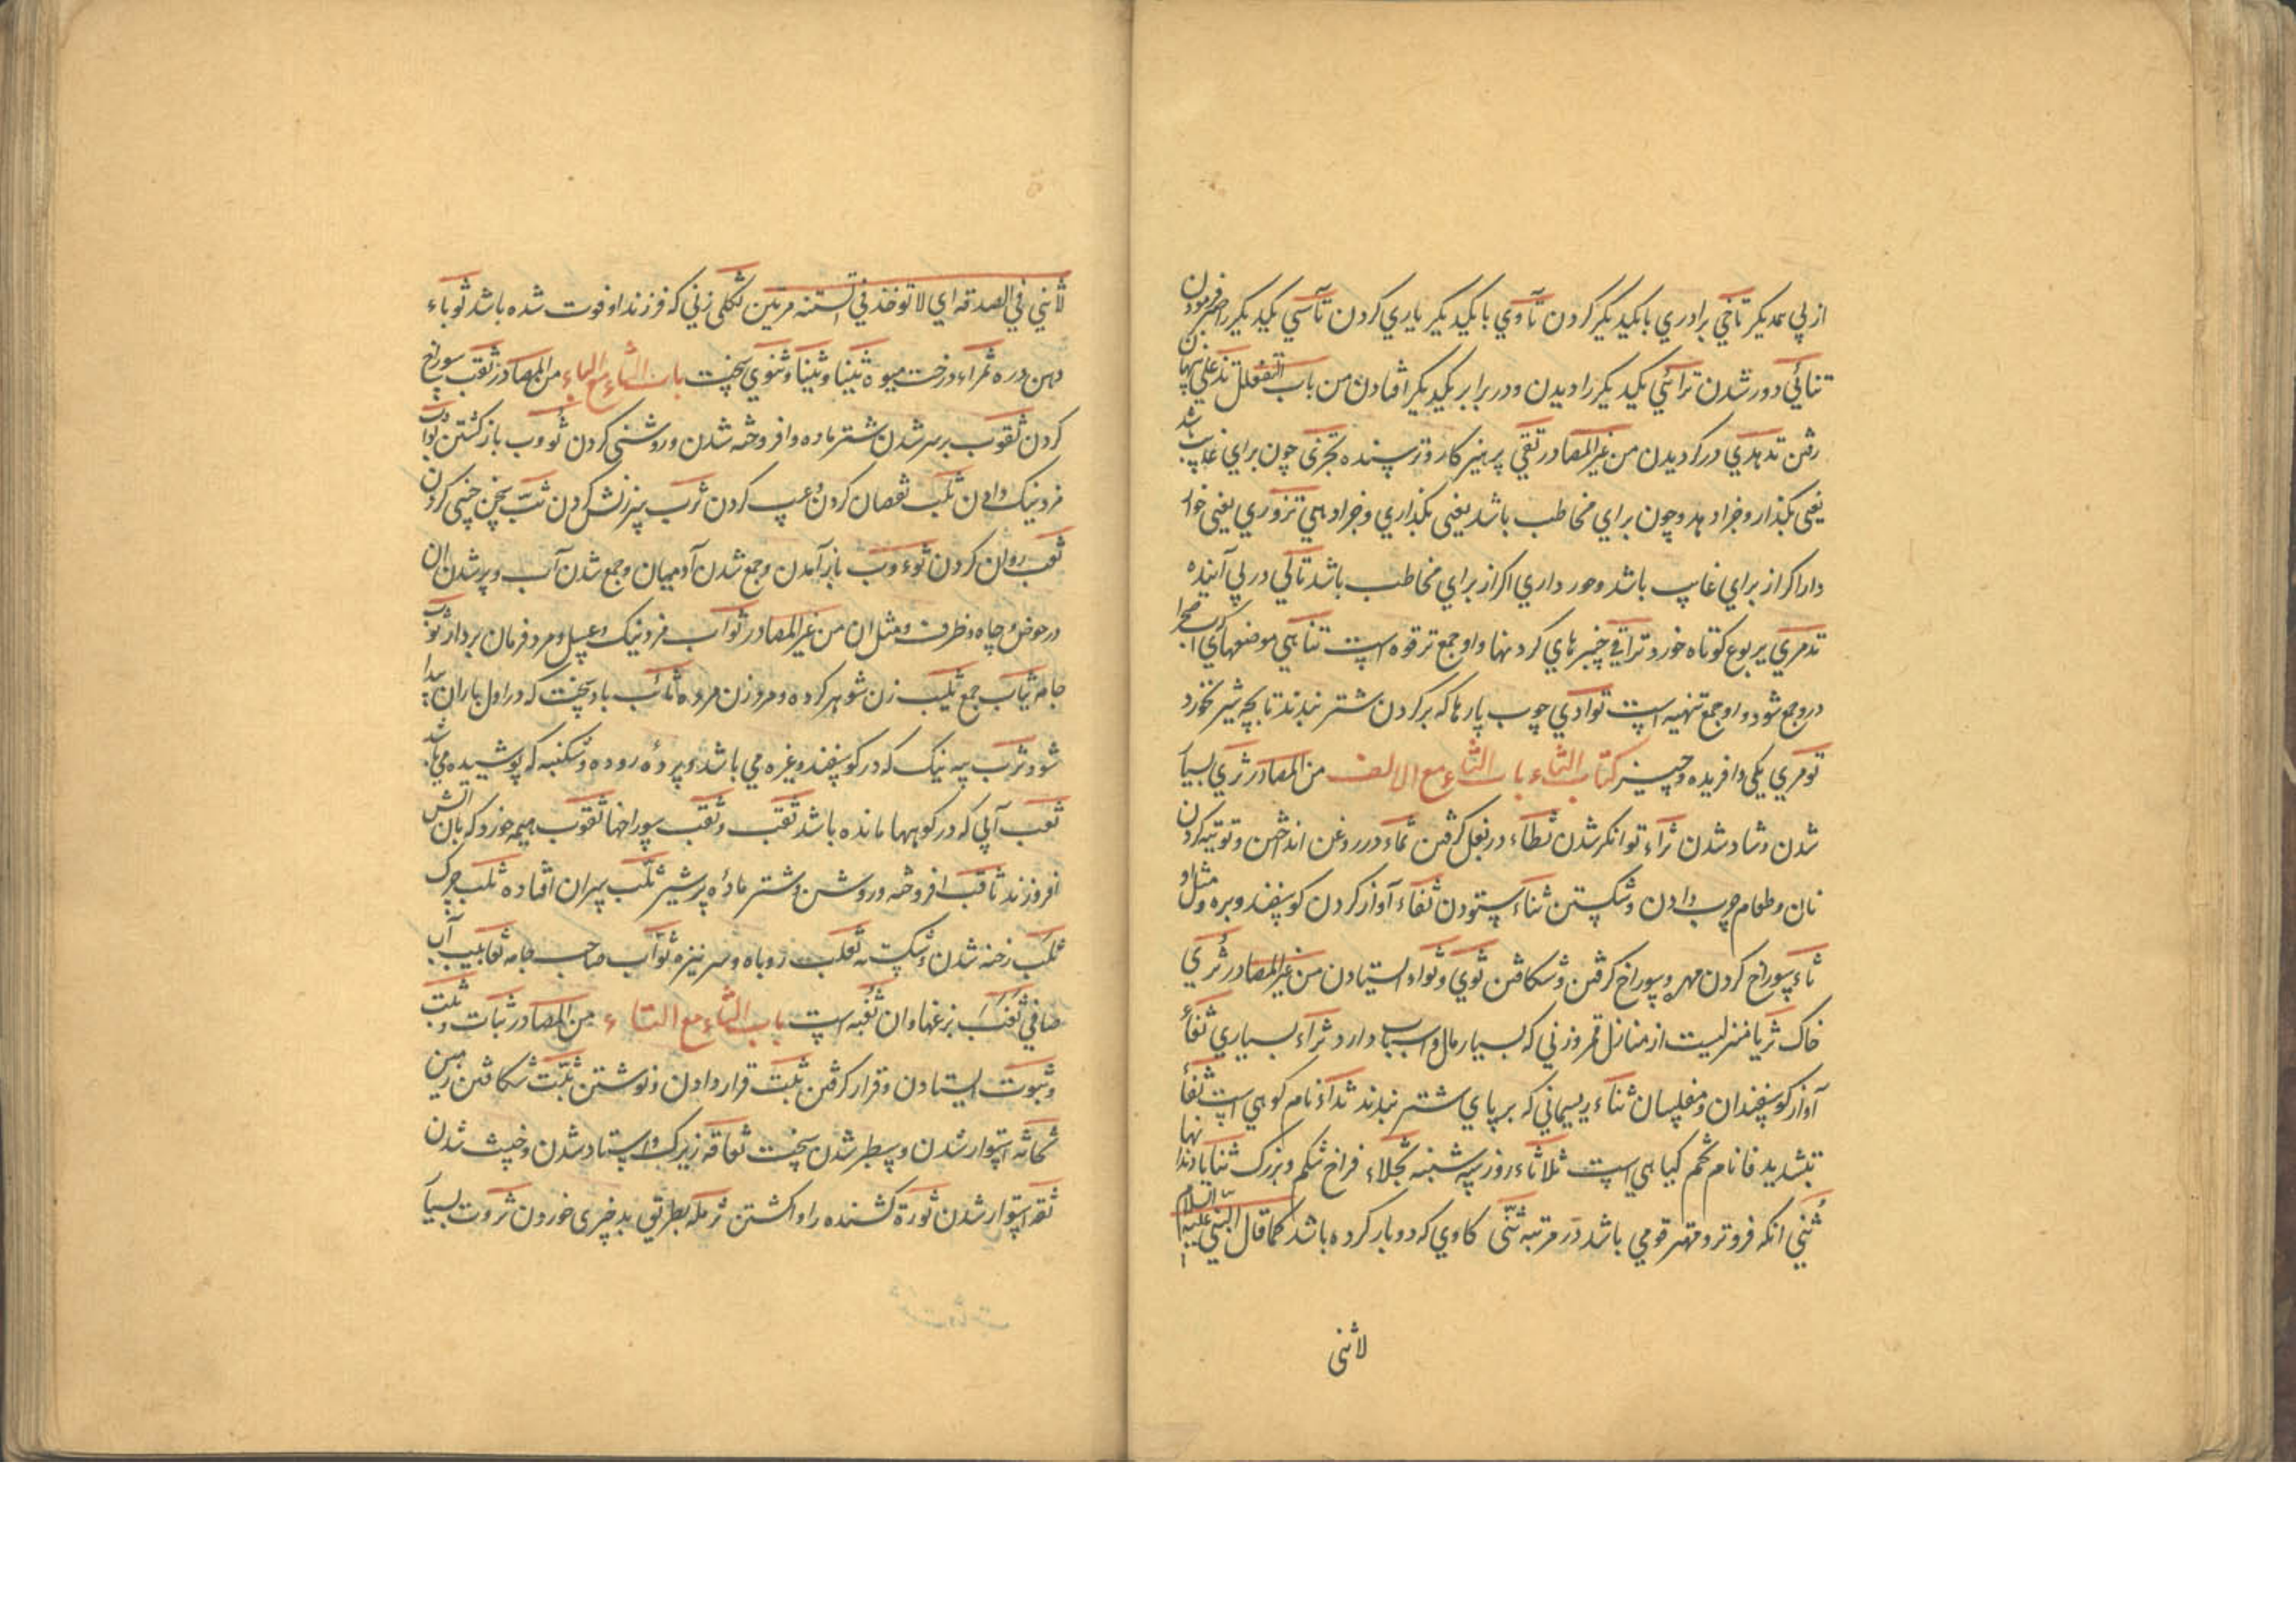 از پي همديكر تاخي برادري با يكديكر كردن تآوي با يكديكر ياري كردن تأسي يكديكر را صبر فرمودن
تنائي دور شدن ترائي يكديكر را ديدن و در برابر يكديكر افتادن من باب التفعلل
رفتن تدهدي در كرديدن من غير المصادر تقي پرهيز كار و ترسنده تجزي چون براي غايب باشد
يعني بكذارد و جزا دهد و چون براي مخاطب باشد يعني بكذاري و جزا دهي تزوري يعني خوار
دارد اكر از براي غايب باشد و خور داري اكر از براي مخاطب باشد تالي در پي آينده
تدمري يربوع كوتاه خورد تراقي چنبرهاي كردنها و او جمع ترقوه است تناهي موضعهائي كه آب صحرا
درو جمع شود و او جمع تنهيه است توادي چوب پارها كه بر كردن شتر بندند تا بچه شير نخورد
تومري يكي و آفريده و چيز كتاب الثاء باب الثاء مع الالف من المصادر ثري بسيار
شدن و شاد شدن ثراء توانكر شدن ثطاء در بغل كرفتن ثماء در روغن انداختن و توتيه كردن
نان و طعام چرب دادن و شكستن ثناء ستودن ثغاء آواز كردن كوسفند و بره و مثل او
ثاء سوراخ كردن مهره و سوراخ كرفتن و شكافتن ثوي و ثواء ايستادن من غير المصادر ثري
خاك ثريا منزليست از منازل قمر و زني كه بسيار مال و اسباب دارد ثراء بسياري ثغاء
آواز كوسفندان و مفلسان ثناء ريسماني كه بر پاي شتر بندند ثداء نام كوهي است ثفاء
بتشديد فا نام تخم كياهي است ثلاثاء روز سه شنبه ثجلاء فراخ شكم و بزرك ثنايا دندانها
ثني انكه فروتر و مهتر قومي باشد در مرتبه ثنى كاوي كه دو بار كرده باشد كما قال النبي عليه السلام
لاثنى
لاثني في الصدقه اي لا توخذ في السنه مرتين ثكلى زني كه فرزند او فوت شده باشد ثوباء
دهن دره ثمراء درخت ميوه ثينا و ثينا و ثنوي سخت باب الثاء مع الباء من المصادر ثقب سوراخ
كردن ثقوب بر سر شدن شتر ماده و افروخته شدن و روشني كردن ثووب باز كشتن ثواب
مزد نيك دادن ثلب نقصان كردن و عيب كردن ثرب سرزنش كردن
ثعب روان كردن ثوءوب باز آمدن و جمع شدن آدميان و جمع شدن آب و پر شدن ان
در حوض و چاه و ظرف و مثل ان من غير المصادر ثواب مزد نيك و عسل و مرد فرمان بردار ثوب
جامه ثياب جمع ثيب زن شوهر كرده و مرد زن مرده ثائب باد سخت كه در اول باران پيدا
شود ثرب پيه نيك كه در كوسفند و غيره مي باشد و پرده روده و شكنبه كه پوشيده مي باشد
ثعب آبي كه در كوهها مانده باشد ثقب و ثقب سوراخها ثقوب هيمه خورد كه بان آتش
افروزند ثاقب افروخته و روشن و شتر ماده پر شير ثلب پيران افتاده ثلب چرك
ثلب رخنه شدن و شكسته ثعلب روباه و سر نيزه ثواب صاحب جامه ثعابيب آب
صافي ثغب بزغها و ان ثغبه است باب الثاء مع التاء من المصادر ثبات و ثبت
و ثبوت ايستادن و قرار كرفتن ثبت قرار دادن و نوشتن ثبت شكافتن زمين
ثخانه استوار شدن و سطبر شدن سخت ثقافه زيرك و استاد شدن و خبيث شدن
ثقه استوار شدن ثورة كشنده را وا كشتن ثرمله بطريق بد چيزي خوردن ثروت بسيار